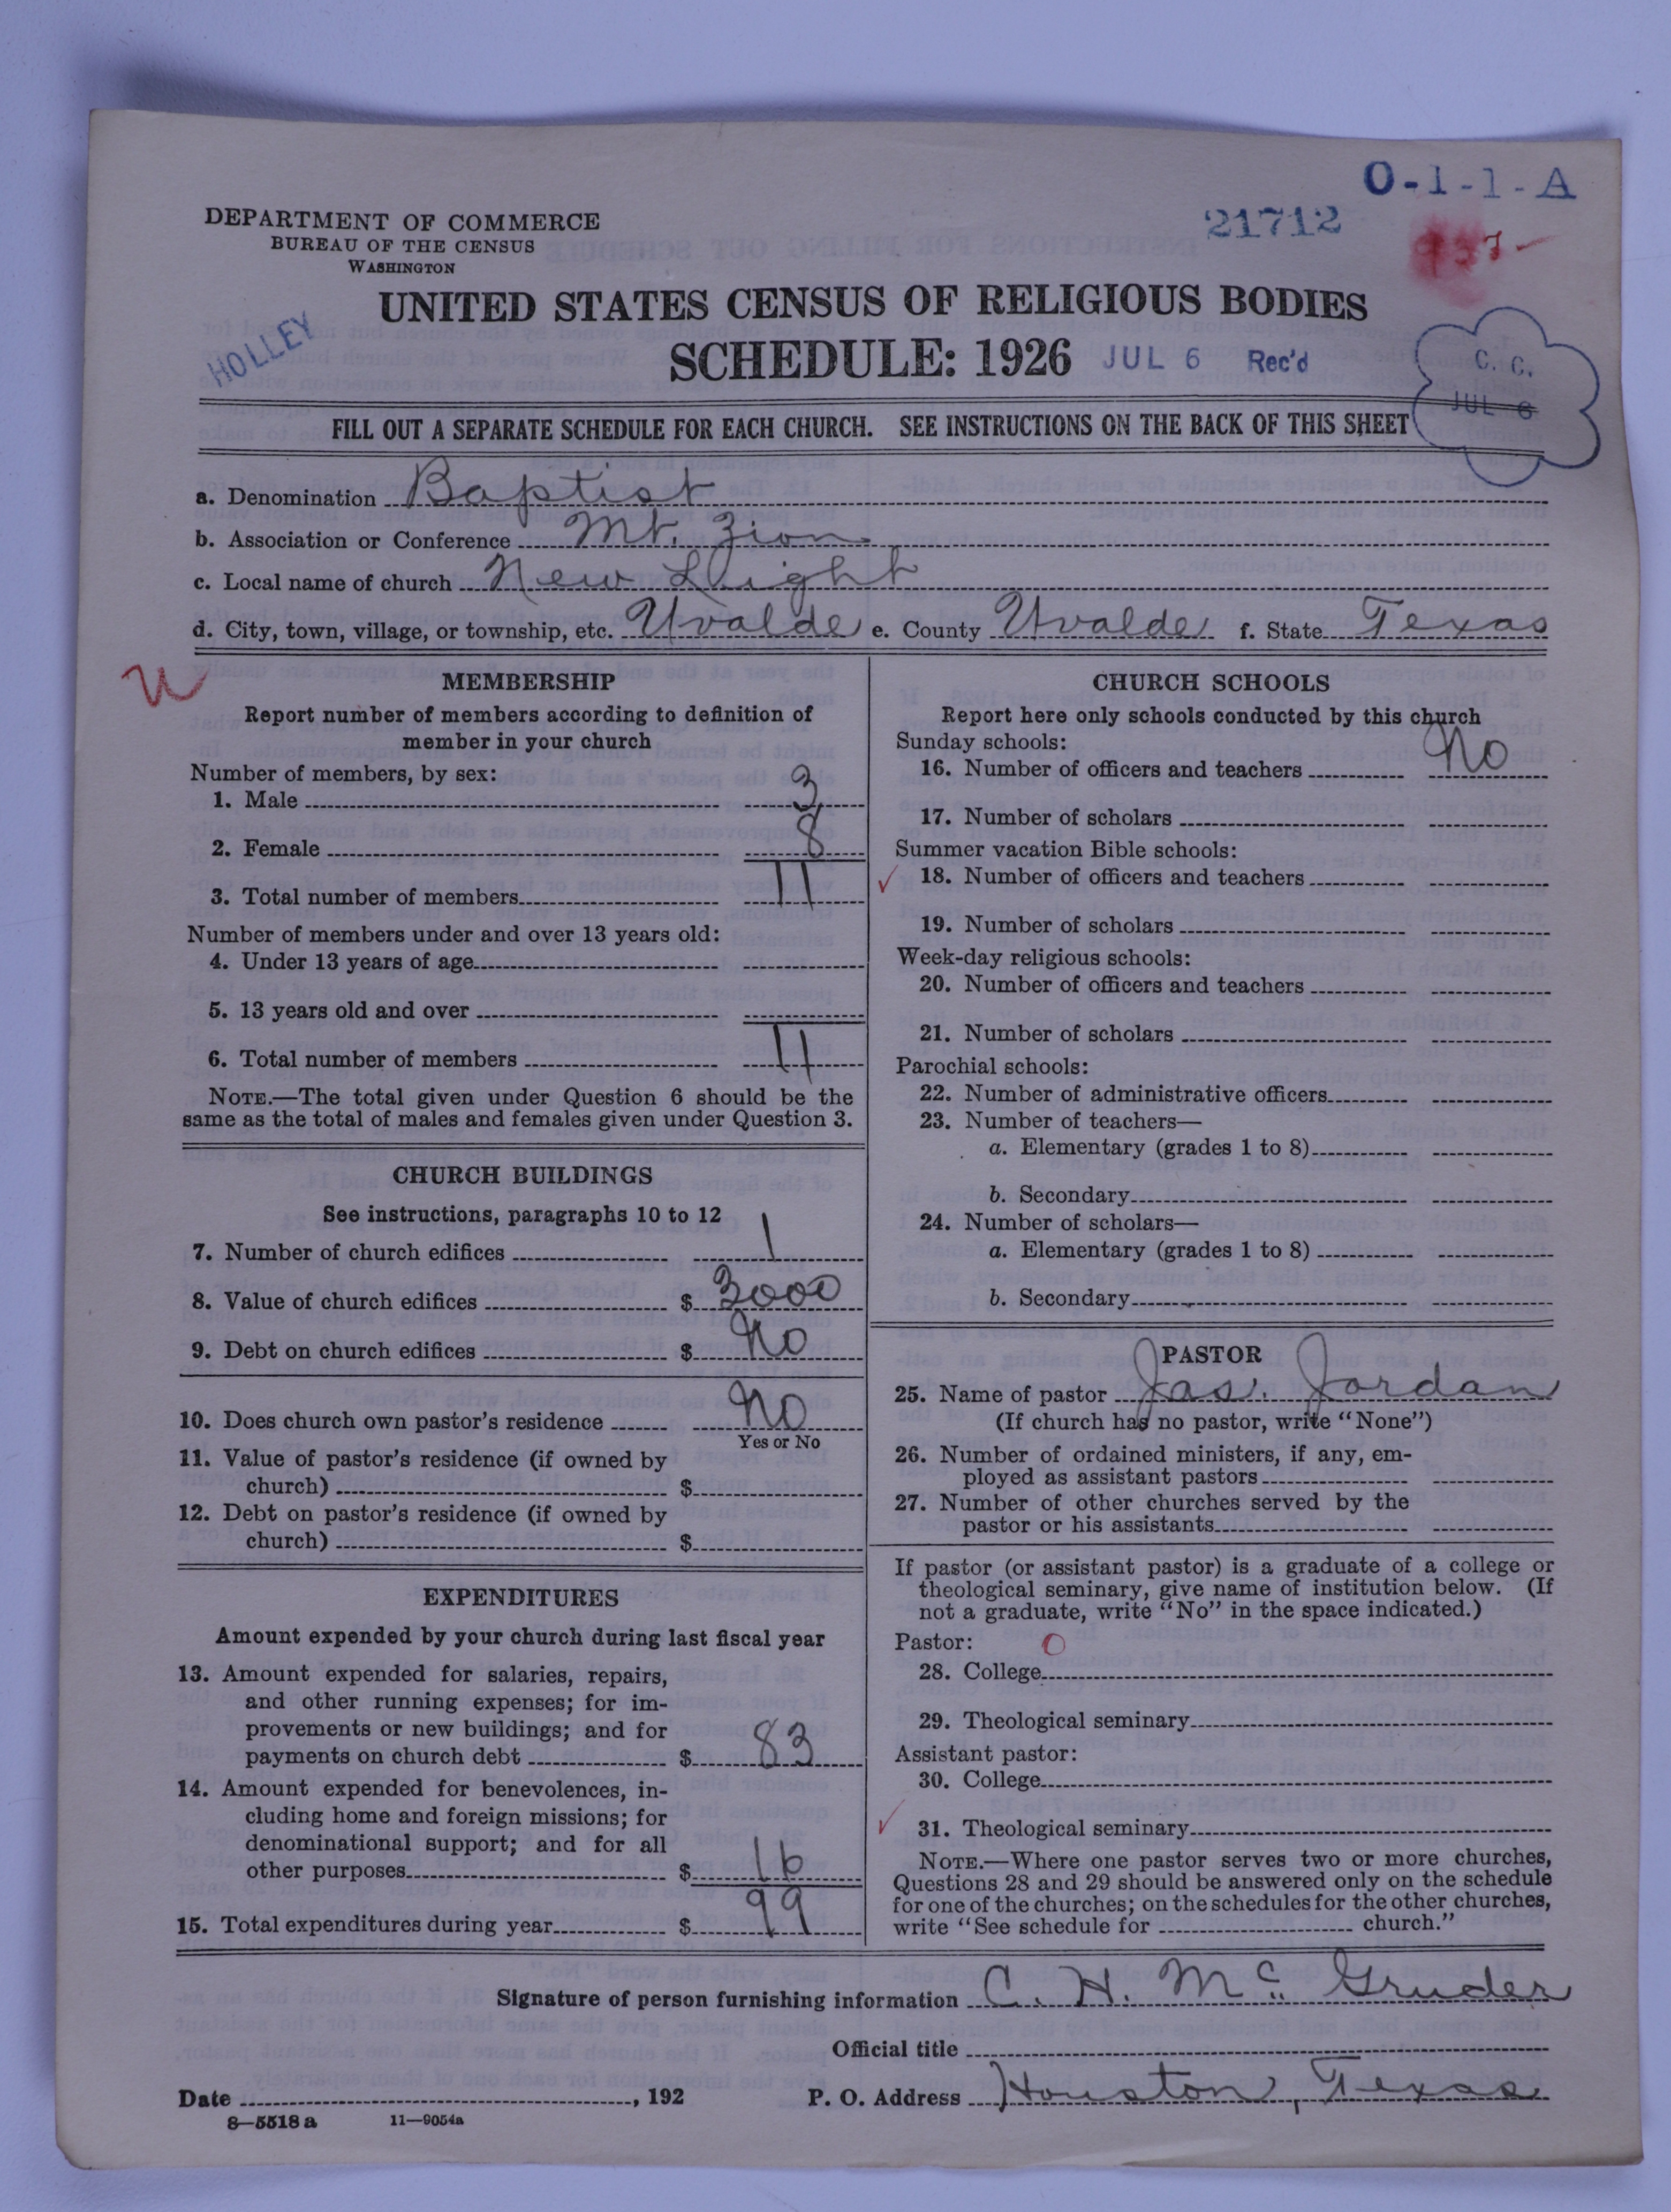 O-1-1-A
21712
DEPARTMENT OF COMMERCE
BUREAU OF THE CENSUS
WASHINGTON
UNITED STATES CENSUS OF RELIGIOUS BODIES
HOLLEY
SCHEDULE: 1926 JUL 6 Rec'd
C. C.
JUL 6
FILL OUT A SEPARATE SCHEDULE FOR EACH CHURCH. SEE INSTRUCTIONS ON THE BACK OF THIS SHEET
a. Denomination Baptist
b. Association or Conference Mt. Zion
c. Local name of church New Light
d. City, town, village, or township, etc. Uvalde e. County Uvalde f. State Texas
MEMBERSHIP
Report number of members according to definition of
member in your church
Number of members, by sex:
1. Male 3
2. Female 8
3. Total number of members 11
Number of members under and over 13 years old:
4. Under 13 years of age
5. 13 years old and over
6. Total number of members 11
NOTE.—The total given under Question 6 should be the
same as the total of males and females given under Question 3.
CHURCH BUILDINGS
See instructions, paragraphs 10 to 12
7. Number of church edifices 1
8. Value of church edifices $ 3000
9. Debt on church edifices $ No
10. Does church own pastor's residence No
Yes or No
11. Value of pastor's residence (if owned by
church) $
12. Debt on pastor's residence (if owned by
church) $
EXPENDITURES
Amount expended by your church during last fiscal year
13. Amount expended for salaries, repairs,
and other running expenses; for im-
provements or new buildings; and for
payments on church debt $ 83
14. Amount expended for benevolences, in-
cluding home and foreign missions; for
denominational support; and for all
other purposes $ 16
15. Total expenditures during year $ 99
CHURCH SCHOOLS
Report here only schools conducted by this church
Sunday schools:
16. Number of officers and teachers No
17. Number of scholars
Summer vacation Bible schools:
18. Number of officers and teachers
19. Number of scholars
Week-day religious schools:
20. Number of officers and teachers
21. Number of scholars
Parochial schools:
22. Number of administrative officers
23. Number of teachers—
a. Elementary (grades 1 to 8)
b. Secondary
24. Number of scholars—
a. Elementary (grades 1 to 8)
b. Secondary
PASTOR
25. Name of pastor Jas. Jordan
(If church has no pastor, write "None")
26. Number of ordained ministers, if any, em-
ployed as assistant pastors
27. Number of other churches served by the
pastor or his assistants
If pastor (or assistant pastor) is a graduate of a college or
theological seminary, give name of institution below. (If
not a graduate, write "No" in the space indicated.)
Pastor: O
28. College
29. Theological seminary
Assistant pastor:
30. College
31. Theological seminary
NOTE.—Where one pastor serves two or more churches,
Questions 28 and 29 should be answered only on the schedule
for one of the churches; on the schedules for the other churches,
write "See schedule for church."
Signature of person furnishing information C. H. Mc Gruder
Official title
Date , 192 P. O. Address Houston, Texas
8—5518 a 11—9054a